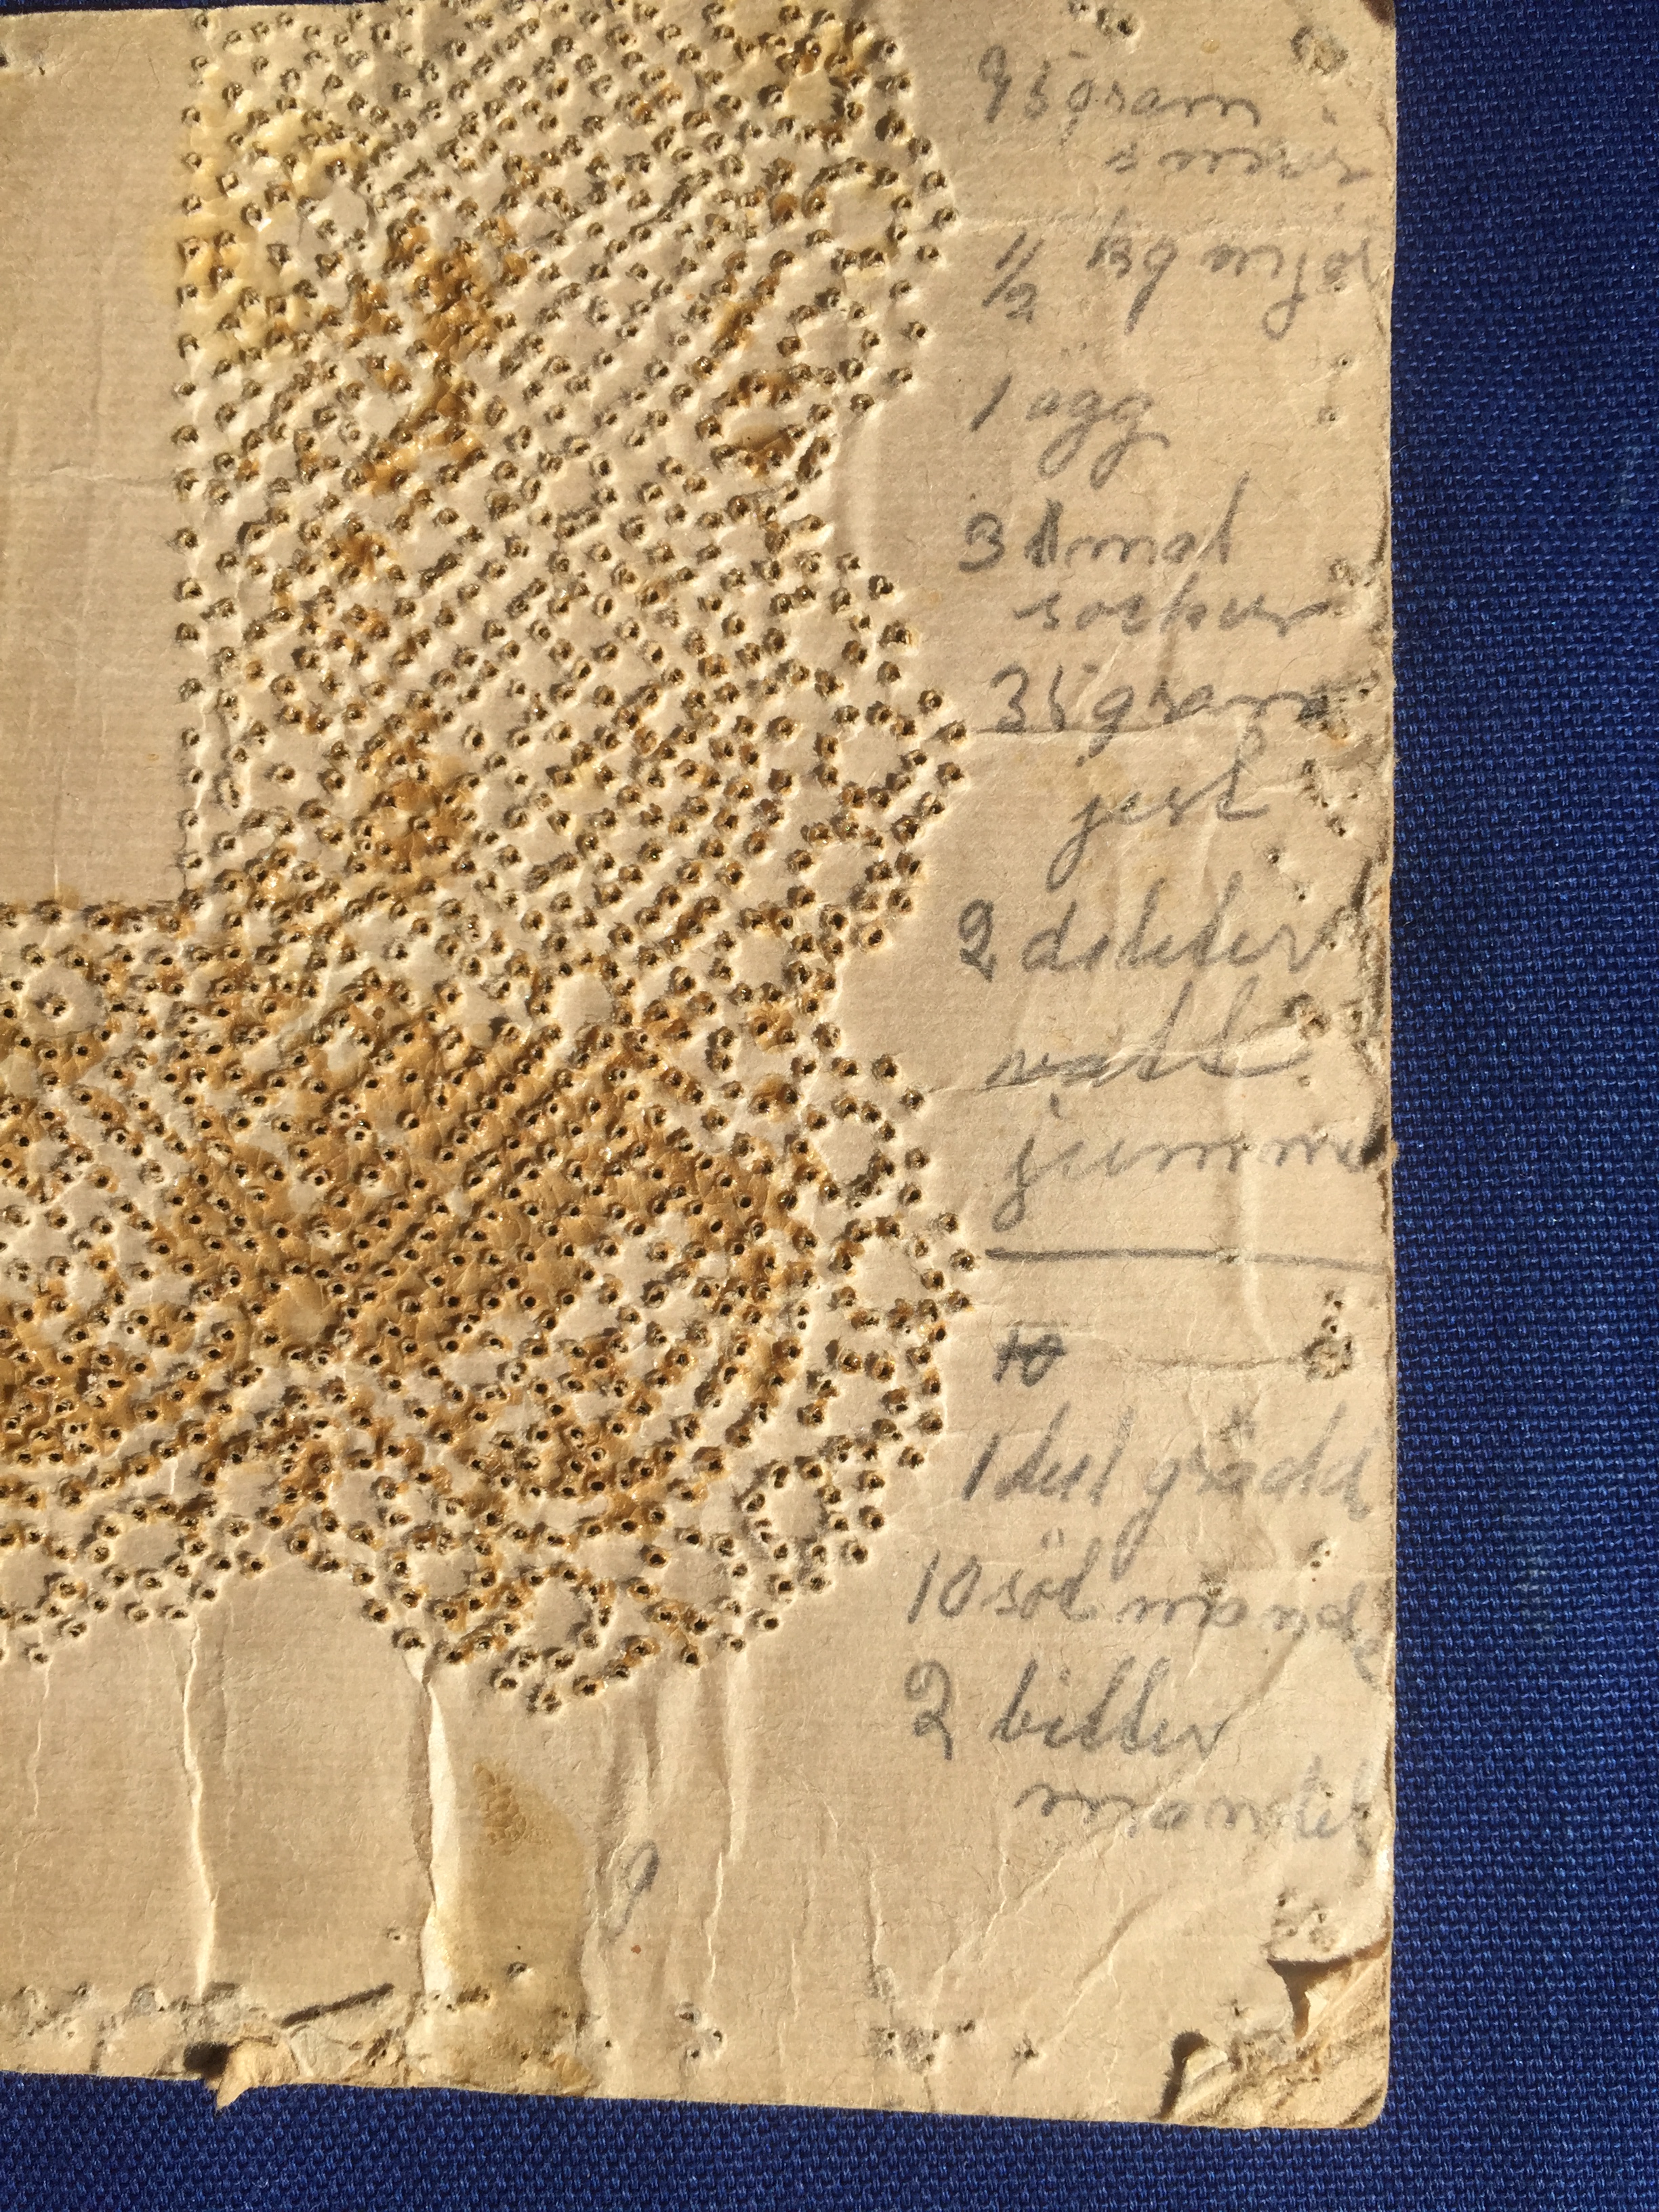 95 gram
smör
1/2 kg mjöl
1 ägg
3 mål
socker
35 gram
jest
2 deliter
vatt
jumme
1 del grädd
10 söt mand
2 bitter
mandel
9